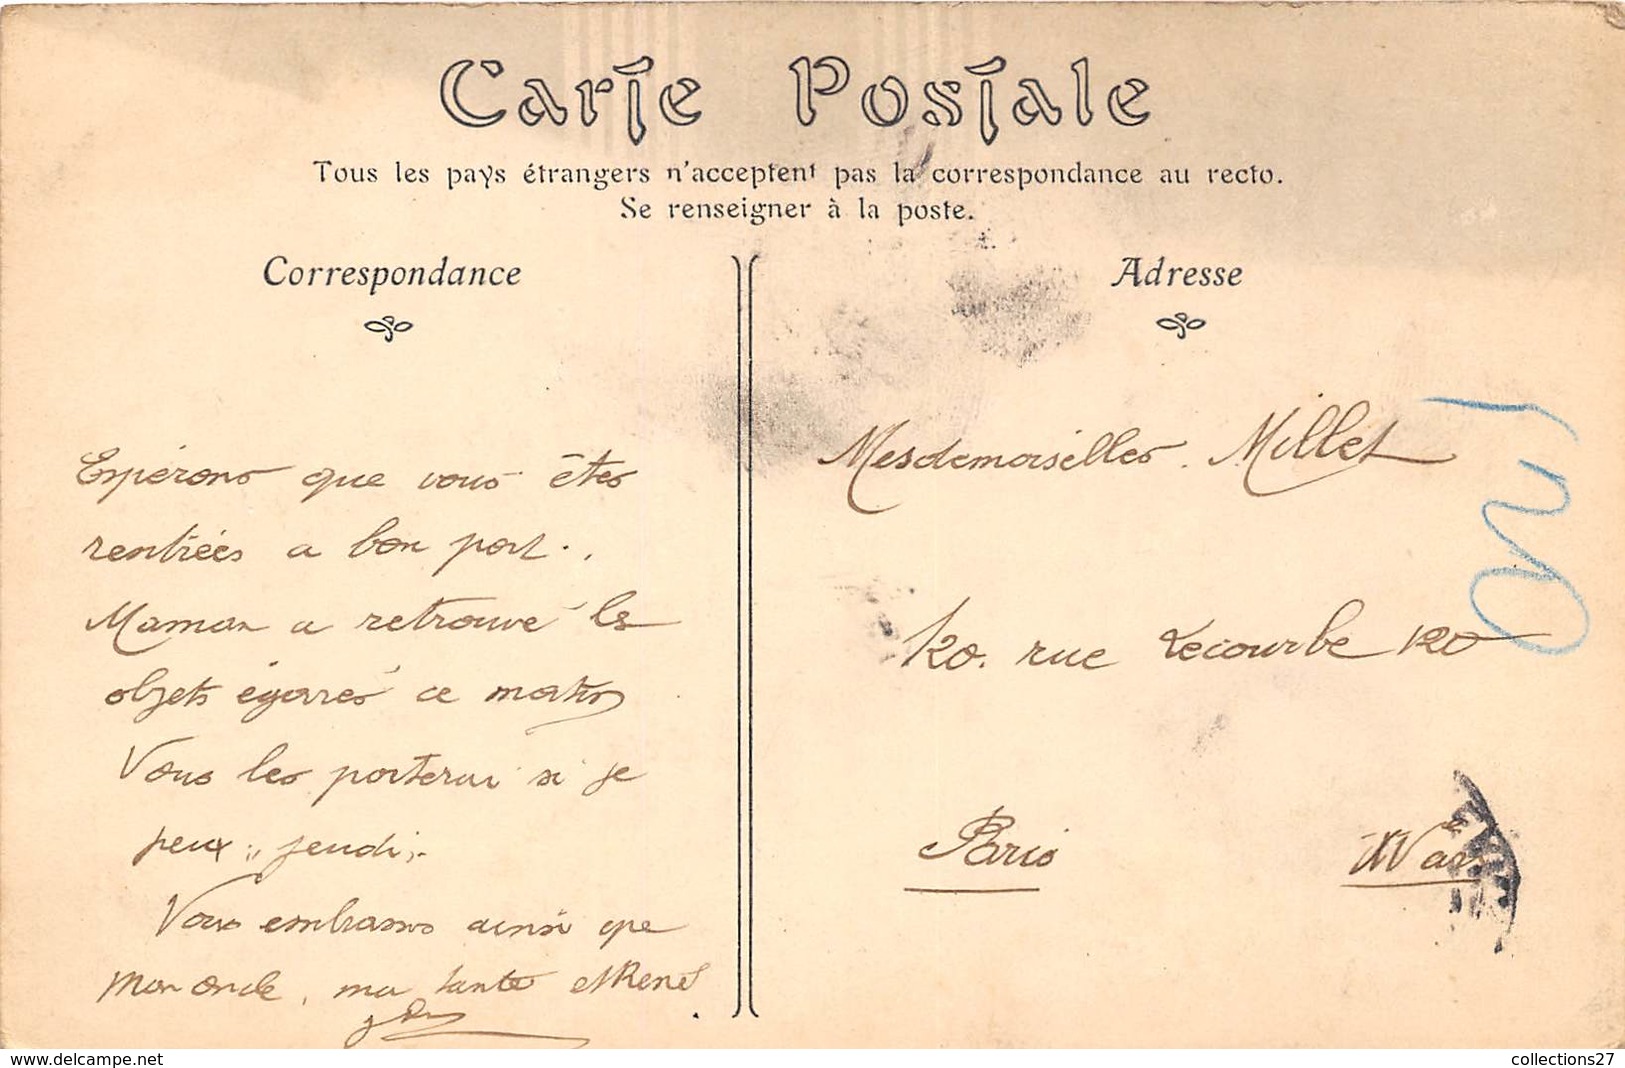 Carte Postale
Tous les pays étrangers n'acceptent pas la correspondance au recto.
Se renseigner à la poste.
Correspondance
Espérons que vous êtes
rentrées a bon port..
Maman a retrouvé les
objets égarés ce matin
Vous les porterai si je
peux, jeudi.
Vous embrassons ainsi que
mon oncle, ma tante et René
Adresse
Mesdemoiselles. Millet
120. rue Lecourbe 120
Paris
XV
www.delcampe.net
collections27